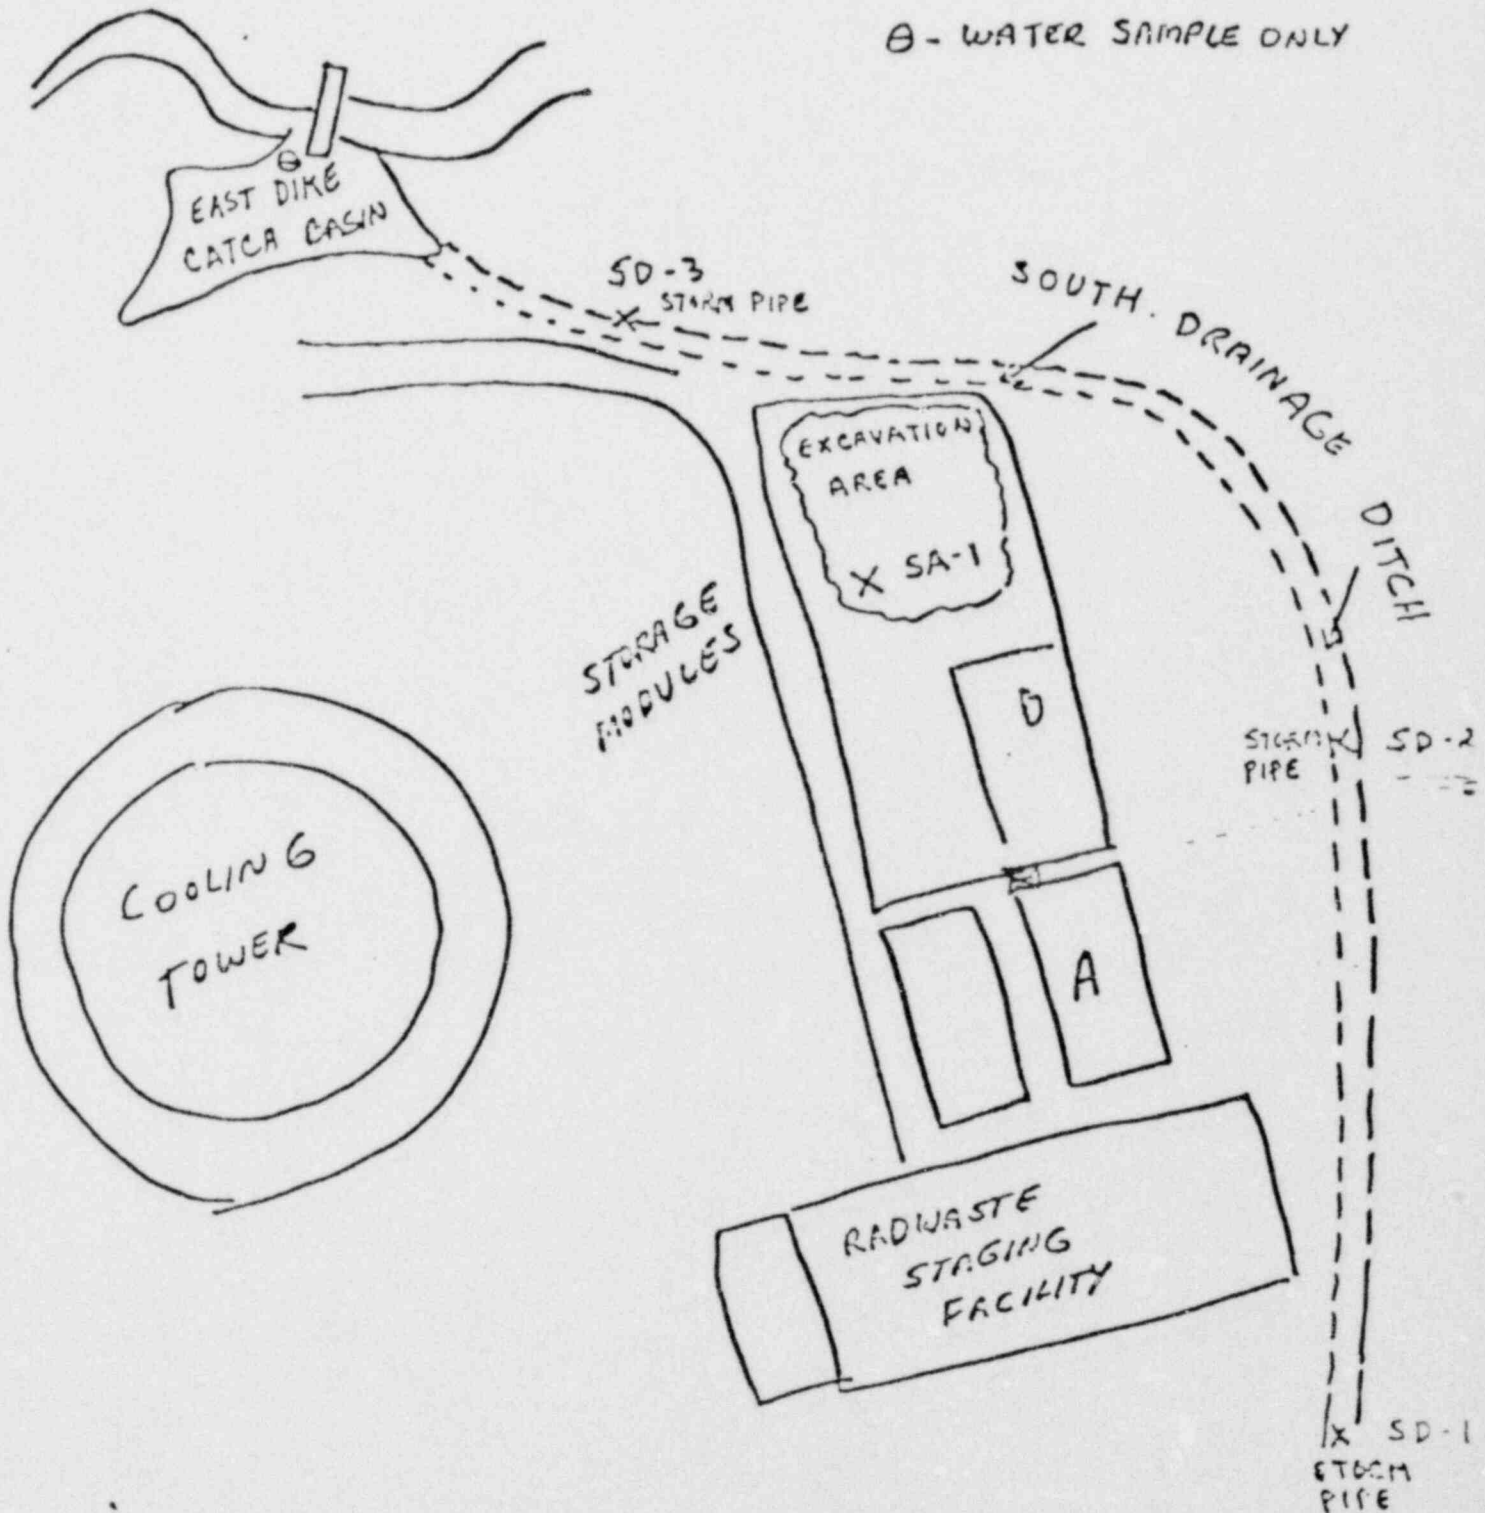 Θ - WATER SAMPLE ONLY
Θ
EAST DIKE
CATCA BASIN
SD-3
STORM PIPE
SOUTH. DRAINAGE DITCH
EXCAVATION
AREA
X SA-1
STORAGE
MODULES
D
STORM
PIPE
X SD-2
COOLING
TOWER
A
RADWASTE
STAGING
FACILITY
X SD-1
STORM
PIPE